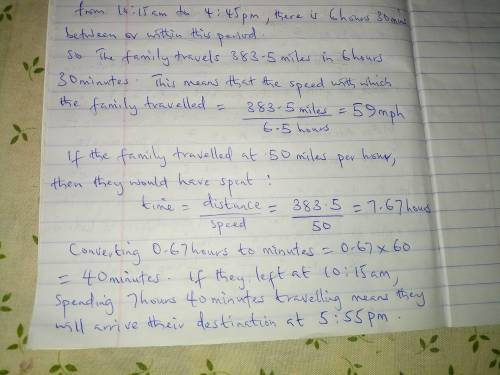 from 10:15am to 4:45pm, there is 6hours 30mins
between or within this period.
So The family travels 383.5 miles in 6hours
30minutes. This means that the speed with which
the family travelled = 383.5 miles / 6.5 hours = 59mph
If the family travelled at 50 miles per hour,
then they would have spent:
time = distance / speed = 383.5 / 50 = 7.67hours
Converting 0.67hours to minutes = 0.67 x 60
= 40minutes. If they left at 10:15am,
Spending 7hours 40minutes travelling means they
will arrive their destination at 5:55pm.